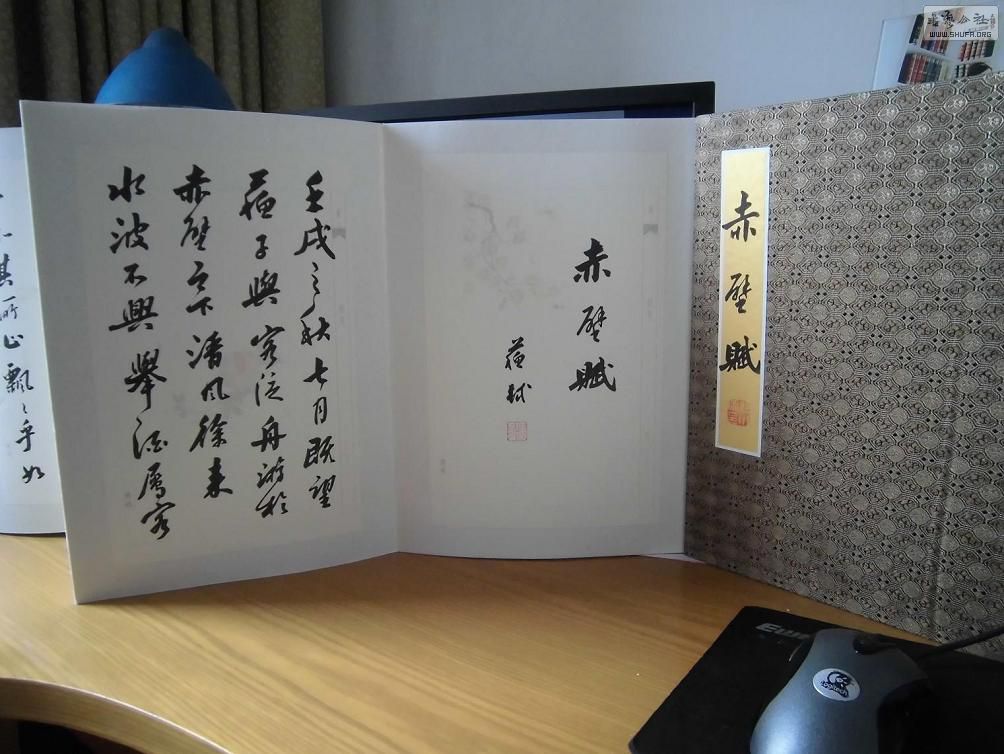 公社
WWW.SHUFA.ORG
赤壁賦
赤壁賦
蘇軾
壬戌之秋七月既望
蘇子與客泛舟游於
赤壁之下清风徐来
水波不興舉酒属客
其所止飄〻乎如
Logitech